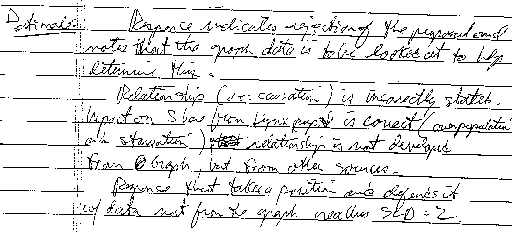 Rationale: Response indicates rejection of the proposed and
notes that the graph data is to be looked at to help
determine this.
Relationship (i.e. causation) is incorrectly stated.
Impact on S has from lynx pop is correct (overpopulation
and starvation) relationship is not developed
from graph, but from other sources.
Response that takes a position and defends it
w/ data not from the graph reaches SLD = 2